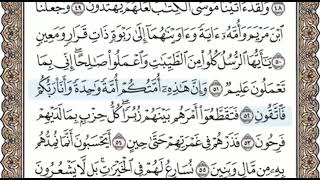 ٤٨ وَلَقَدْ ءَاتَيْنَا مُوسَى ٱلْكِتَٰبَ لَعَلَّهُمْ يَهْتَدُونَ ٤٩ وَجَعَلْنَا
ٱبْنَ مَرْيَمَ وَأُمَّهُۥٓ ءَايَةً وَءَاوَيْنَٰهُمَآ إِلَىٰ رَبْوَةٍ ذَاتِ قَرَارٍ وَمَعِينٍ
٥٠ يَٰٓأَيُّهَا ٱلرُّسُلُ كُلُوا۟ مِنَ ٱلطَّيِّبَٰتِ وَٱعْمَلُوا۟ صَٰلِحًا إِنِّى بِمَا
تَعْمَلُونَ عَلِيمٌ ٥١ وَإِنَّ هَٰذِهِۦٓ أُمَّتُكُمْ أُمَّةً وَٰحِدَةً وَأَنَا۠ رَبُّكُمْ
فَٱتَّقُونِ ٥٢ فَتَقَطَّعُوٓا۟ أَمْرَهُم بَيْنَهُمْ زُبُرًا كُلُّ حِزْبٍۭ بِمَا لَدَيْهِمْ
فَرِحُونَ ٥٣ فَذَرْهُمْ فِى غَمْرَتِهِمْ حَتَّىٰ حِينٍ ٥٤ أَيَحْسَبُونَ أَنَّمَا نُمِدُّهُم
بِهِۦ مِن مَّالٍ وَبَنِينَ ٥٥ نُسَارِعُ لَهُمْ فِى ٱلْخَيْرَٰتِ بَل لَّا يَشْعُرُونَ